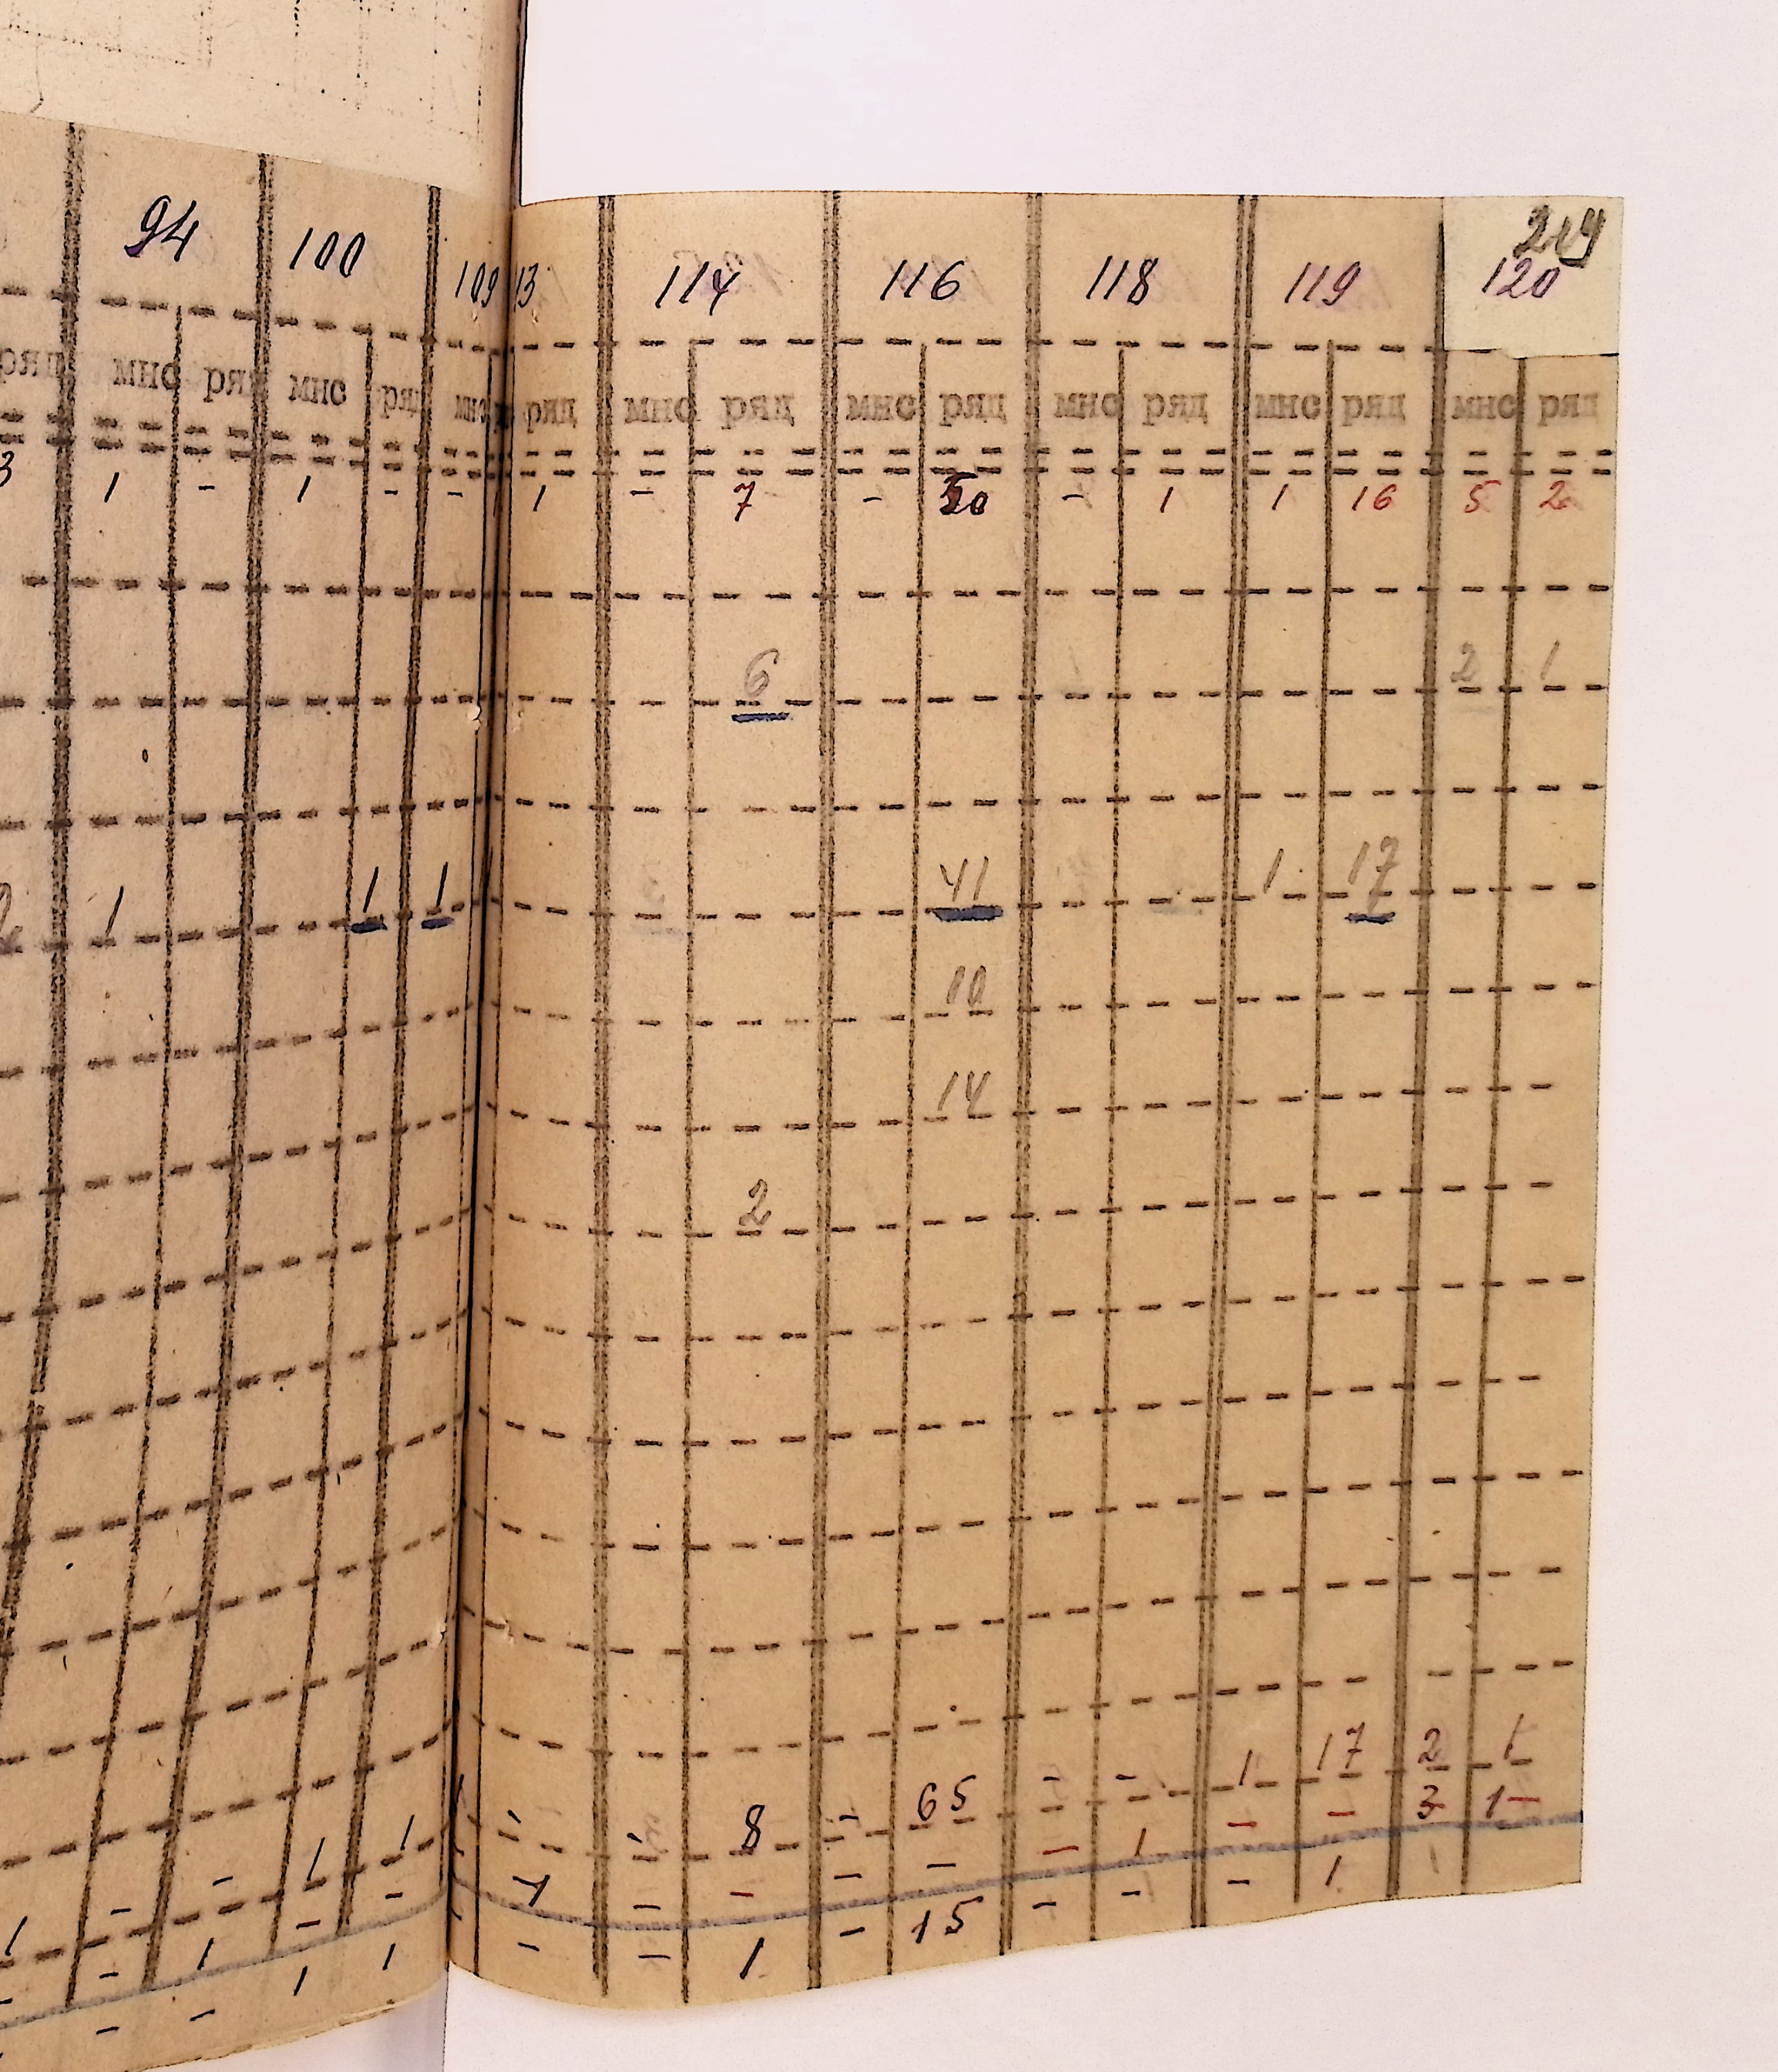 219
94 100 109 13 114 116 118 119 120
ряд мнс ряд мнс ряд мнс ряд мнс ряд мнс ряд мнс ряд мнс ряд мнс ряд
3 1 - 1 - - 1 - 7 - 50 - 1 1 16 5 2
6 2 1
2 1 1 1 41 1 17
10
14
2
1 - 1 1 - - 8 - 65 - - 1 17 2 1
- 1 - - 1 - - - - - 1 - - 3 1 -
- - 1 1 - - 1 - 15 - - - 1 1